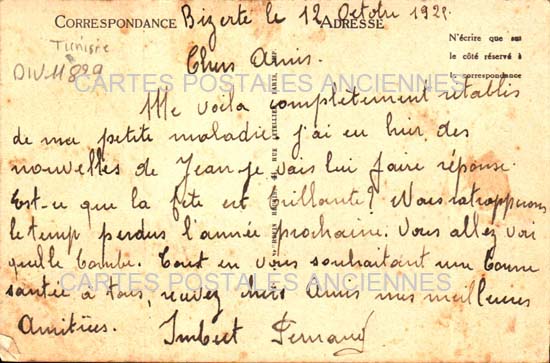 CORRESPONDANCE
Bizerte le 12 Octobre 192
ADRESSE
Tunisie
DIV-11829
N'écrire que sur
le côté réservé à
la correspondance
Chers Amis.
CARTES POSTALES ANCIENNES
Me voila complètement rétablis
de ma petite maladie j'ai eu hier des
nouvelles de Jean je vais lui faire réponse.
Est-ce que la fête est brillante? Nous ratrapperons
le temp perdus l'année prochaine. Vous allez voir
quelle bombe. Tout en vous souhaitant une bonne
CARTES POSTALES ANCIENNES
santée a tous, recevez chers Amis mes meilleures
Amitiées. Imbert Fernand